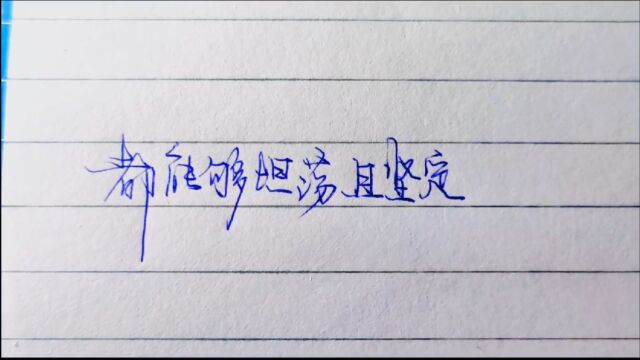 都能够坦荡且坚定